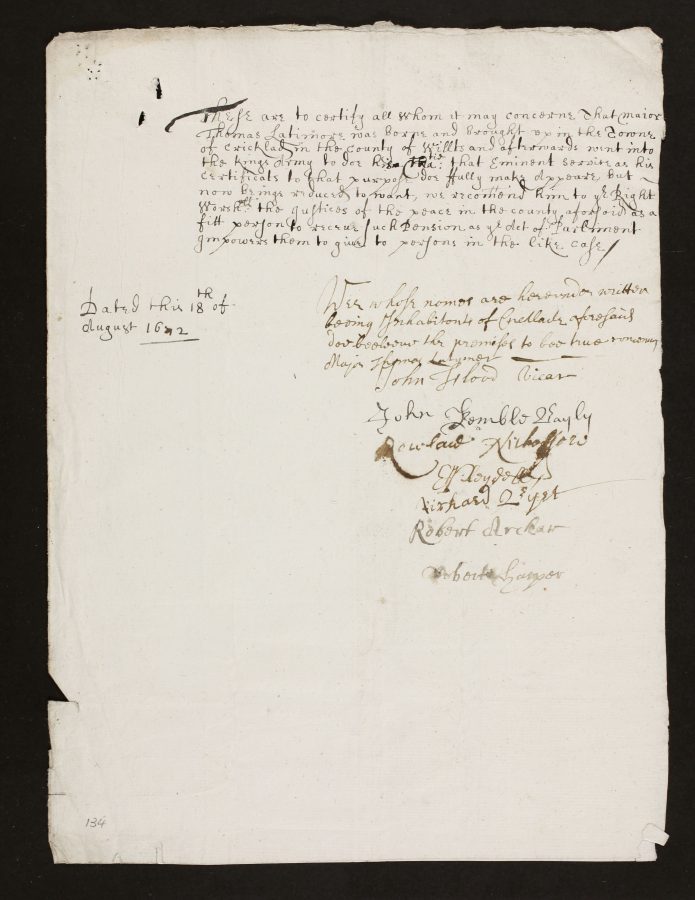 These are to certify all whom it may concerne That maior
Thomas Latimore was borne and brought up in the Towne
of Cricklad in the County of Willts and afterwards went into
the kings Army to doe his Ma:tie that Eminent service as his
Certificats to that purpose doe ffully make Appeare but
now beinge reduced to want, we recomend him to ye Right
Worsh:ll the Justices of the peace in the county aforsaid as a
fitt person to receive such Pension as ye Act of Parliment
Impowers them to give to persons in the like case
Dated this 18th of
August 1672
Wee whose names are hereunder written
beeing Inhabitants of Cricklade aforesaid
doe beeleeve the premises to bee true concerning
Major Thomas Latymer
John Flood Vicar
John Kemble Bayly
Rowland
Richard
Robert Archar
Robert Harper
134